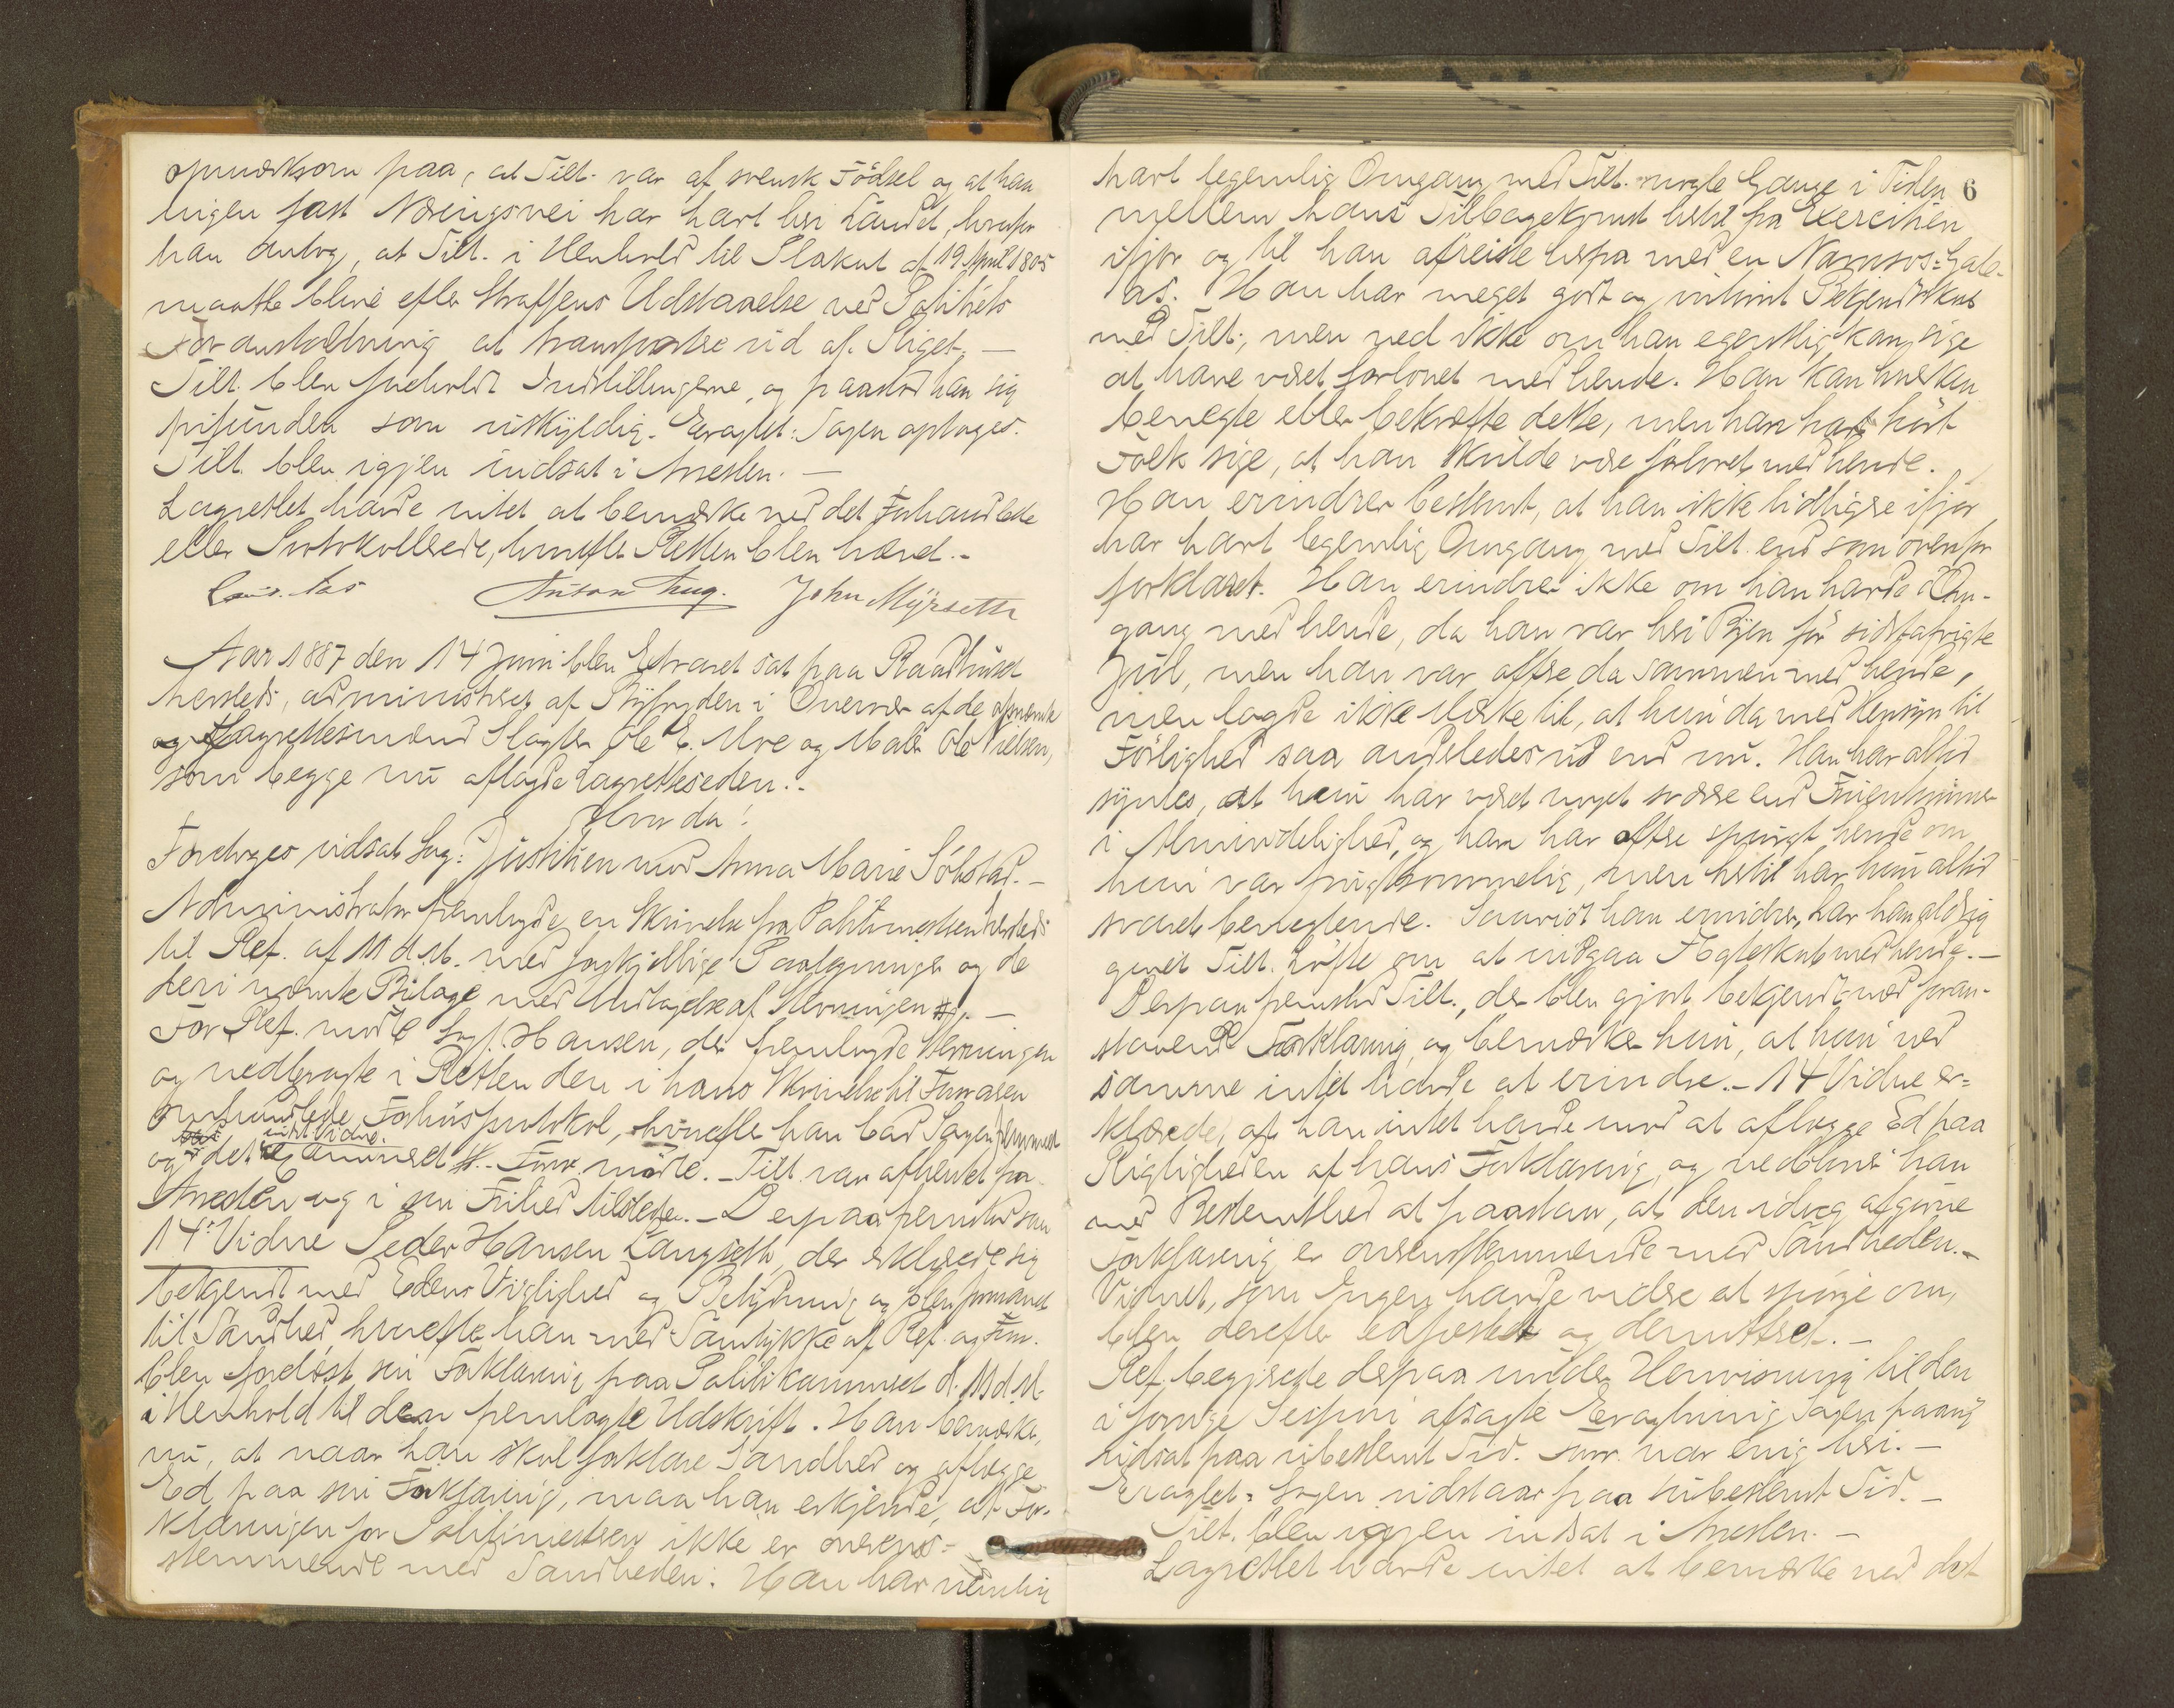 opmærksom paa, at Tilt. var af svensk Födsel og at han
ingen fast Næringsvei har havt her i Landet, hvorfor
han antog, at Tilt. i Henhold til Plakat af 19 April 1805
maatte blive efter Straffens Udstaaelse ved Politiets
Foranstaltning at transportere ud af Riget. —
Tilt. blev foreholdt Indstillingerne, og paastod han sig
frifunden som uskyldig. Eragtet: Sagen optages.
Tilt. blev igjen indsat i Arresten. —
Lagrettet havde intet at bemærke ved det Forhandlede
eller Protokollerede, hvorefter Retten blev hævet. -
John Myrseth
Aar 1887 den 14 Juni blev Extraret sat paa Raadhuset
hersteds, administreret af Byfogden i Overvær af de opnævnte
og Lagrettesmænd Slagter Ole E. Moe og Maler Ole Nielsen,
som begge nu aflagde Lagretteseden. -
Hvor da!
Foretoges udsat Sag: Justitien mod Anna Marie Sölstad. —
Administrator fremlagde en Skrivelse fra Politimesteren hersteds
til Ref. af 11 d. M. med forskjellige Paategninger og de
deri nævnte Bilage med Undtagelse af Stevningen. —
For Ref. mödte Sagf. Hansen, der fremlagde Stevningen
og nedbragte i Retten den i hans Skrivelse til Forvareren
omhandlede Forhörsprotokol, hvorefter han bad Sagen fremmet
indst. Vidne.
og det Examineret. Forsv. mödte. - Tilt. var afhentet fra
Arresten og i sin Frihed tilstede. - Derpaa fremstod som
14de Vidne Peder Hansen Langseth, der erklærede sig
bekjendt med Edens Vigtighed og Betydning og blev formanet
til Sandhed, hvorefter han med Samtykke af Ref. og Forsv.
blev forelæst sin Forklaring paa Politikammeret d. 11 d. M.
i Henhold til den fremlagte Udskrift. Han bemærker
nu, at naar han skal forklare Sandhed og aflægge
Ed paa sin Forklaring, maa han erkjende, at For-
klaringen for Politimesteren ikke er overens-
stemmende med Sandheden. Han har nemlig
6
havt legemlig Omgang med Tilt. nogle Gange i Tiden
mellem hans Tilbagekomst hertil fra Exercitien
ifjor og til han afreiste herfra med en Namsos-Gale-
as. Han har meget godt og intimt Bekjendtskab
med Tilt., men ved ikke om han egentlig kan sige
at have været forlovet med hende. Han kan hverken
benegte eller bekræfte dette, men han har hört
Folk sige, at han skulde være forlovet med hende.
Han erindrer bestemt, at han ikke tidligere ifjor
har havt legemlig Omgang med Tilt. end som ovenfor
forklaret. Han erindrer ikke om han havde Om-
gang med hende, da han var her i Byen för sidstafvigte
Jul, men han var oftere da sammen med hende,
men lagde ikke Mærke til, at hun da med Hensyn til
Förlighed saa anderledes ud end nu. Han har altid
syntes, at hun har været noget sværere end Fruentimmer
i Almindelighed, og han har oftere spurgt hende om
hun var frugtsommelig, men hertil har hun altid
svaret benegtende. Saavidt han erindrer, har han aldrig
givet Tilt. Löfte om at indgaa Ægteskab med hende. —
Derpaa fremstod Tilt., der blev gjort bekjendt med foran-
staaende Forklaring, og bemærker hun, at hun ved
samme intet havde at erindre. - 14 Vidne er-
klærede, at han intet havde mod at aflægge Ed paa
Rigtigheden af hans Forklaring, og vedblev han
med Bestemthed at paastaa, at den idag afgivne
Forklaring er overensstemmende med Sandheden. -
Vidnet, som Ingen havde videre at spörge om,
blev derefter edfæstet og demitteret. —
Ref. begjærede derpaa under Henvisning til den
i forrige Session afsagte Eragtning Sagen paany
udsat paa ubestemt Tid. Forsv. var enig heri. —
Eragtet: Sagen udstaar paa ubestemt Tid. —
Tilt. blev igjen indsat i Arresten. —
Lagrettet havde intet at bemærke ved det